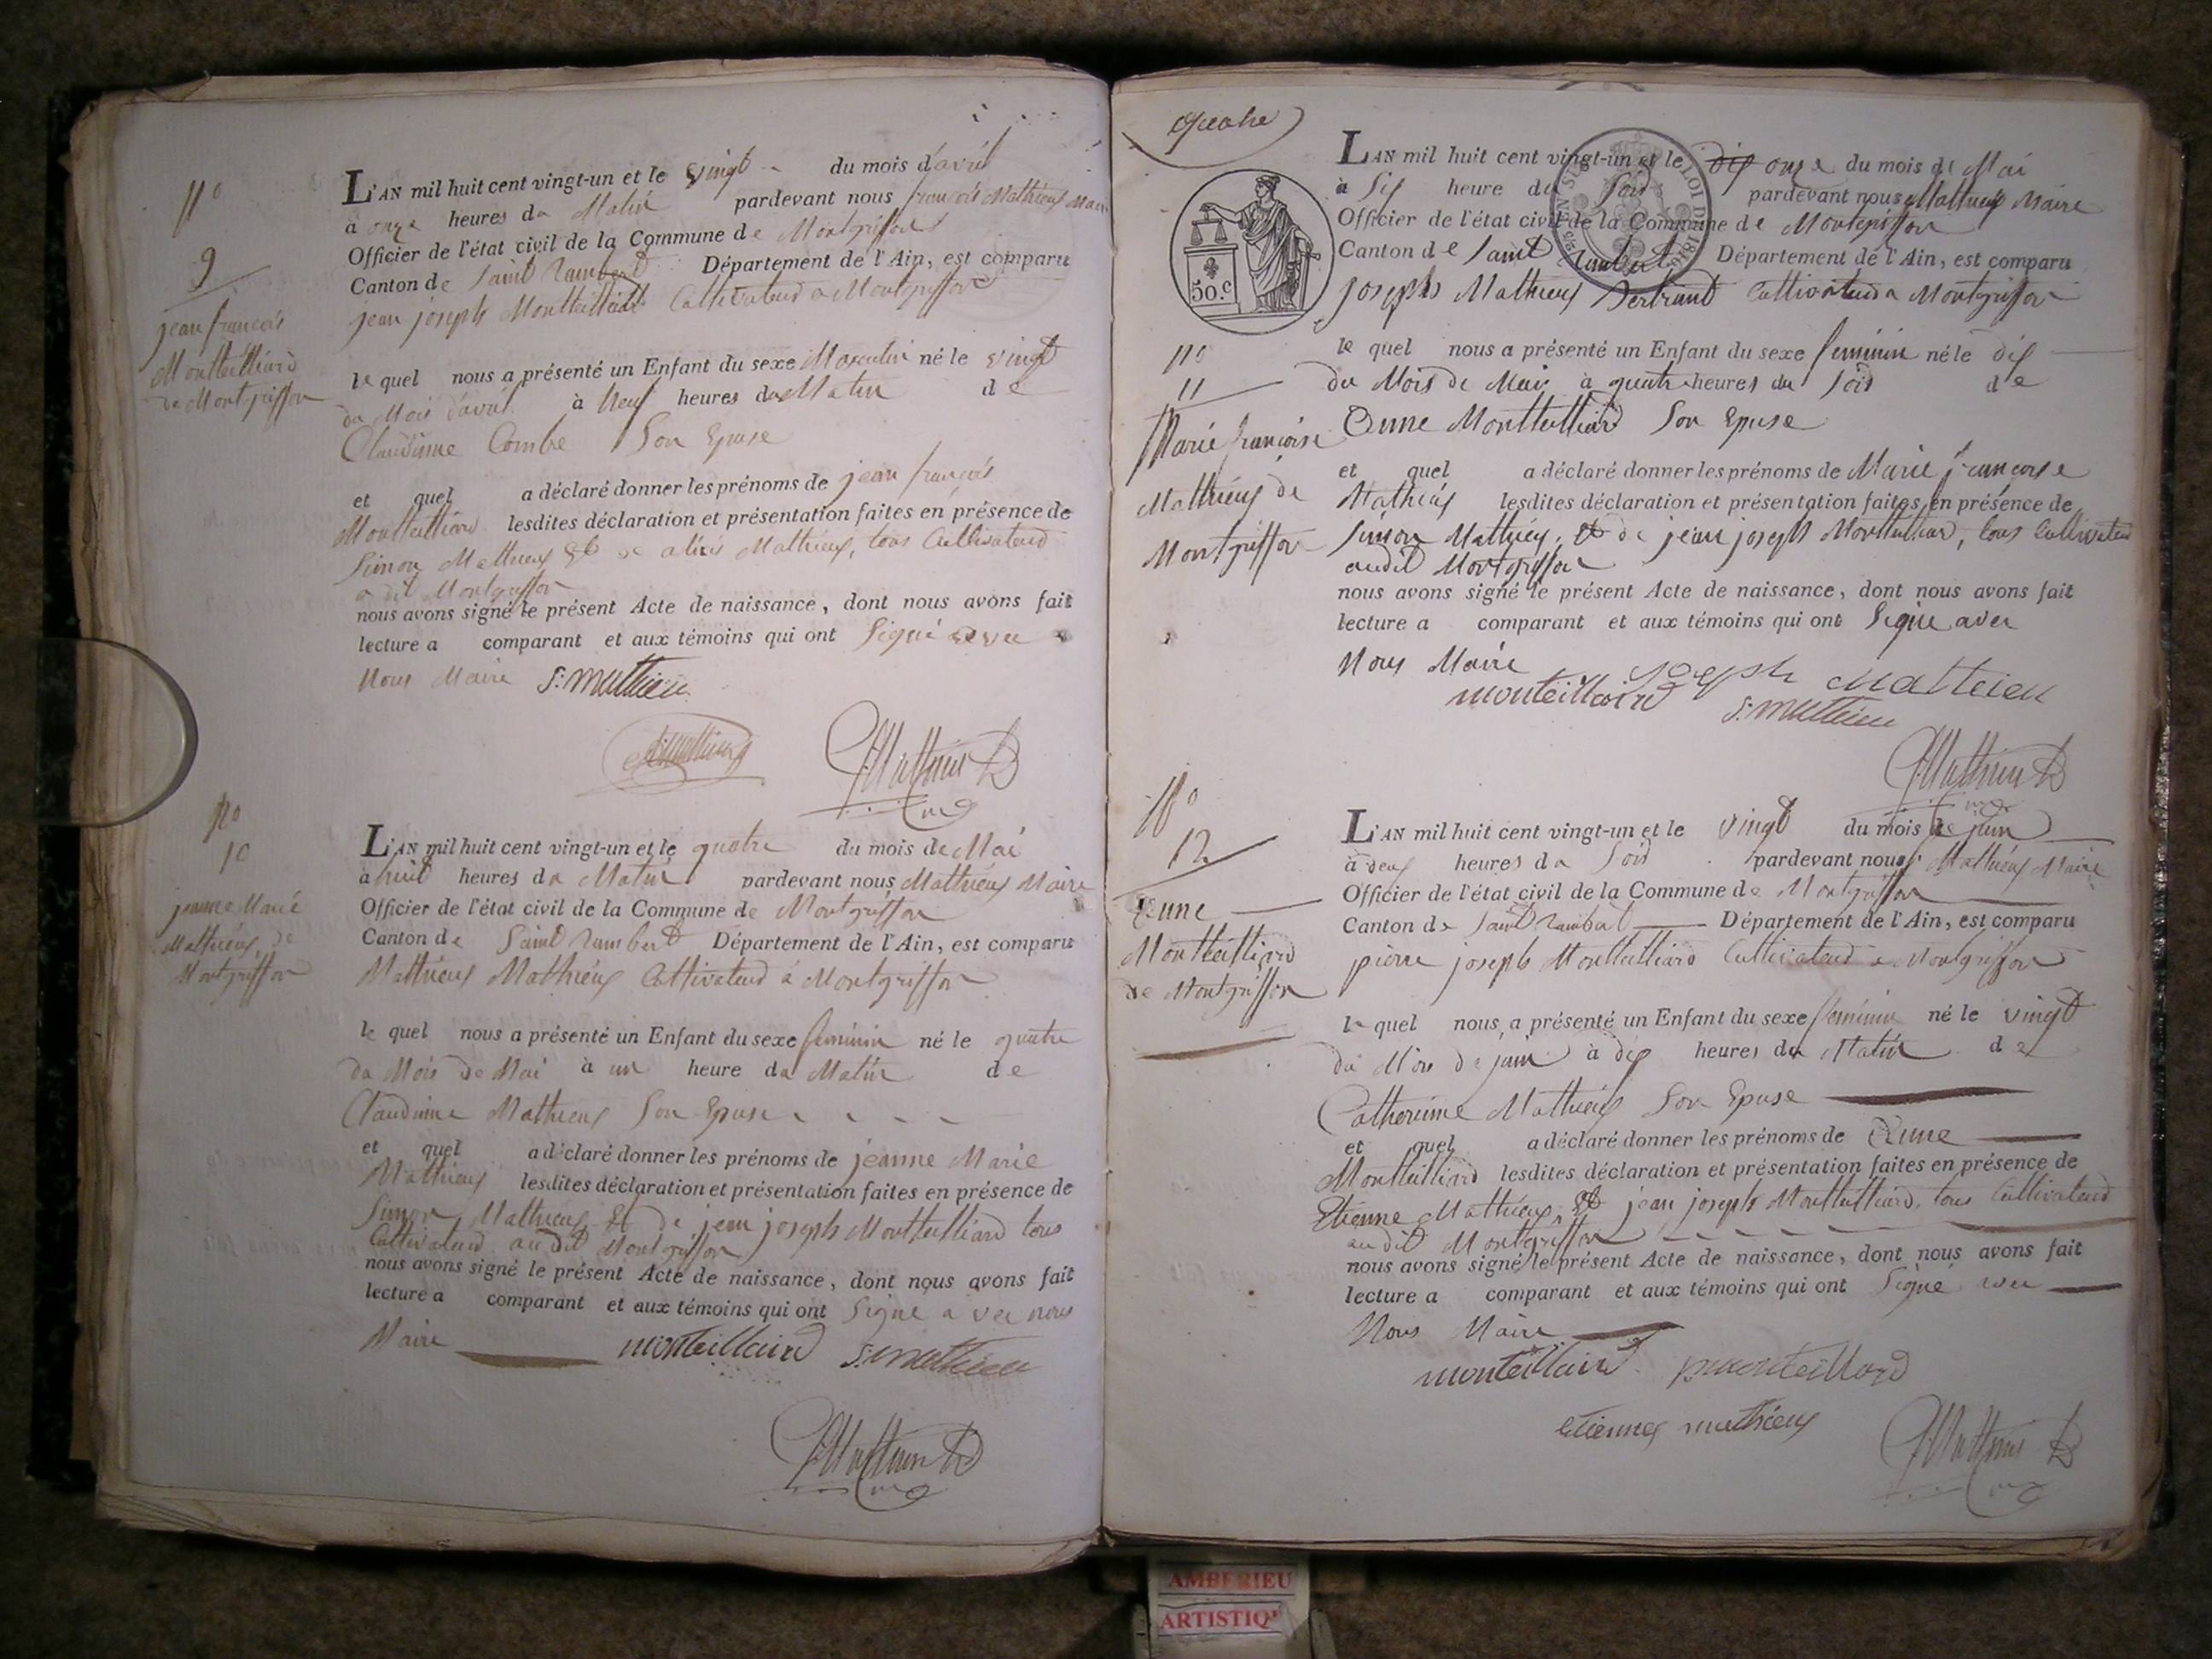 N°
9
jean françois
Montteilliard
de Montgriffon
L'AN mil huit cent vingt-un et le vingt du mois d'avril
à onze heures du Matin pardevant nous françois Mathieux Maire
Officier de l'état civil de la Commune de Montgriffon
Canton de Saint Rambert Département de l'Ain, est comparu
jean joseph Montteilliard Cultivateur a Montgriffon
le quel nous a présenté un Enfant du sexe Masculin né le vingt
du Mois d'avril à Neuf heures du Matin de
Claudinne Combe Son Epuse
et quel a déclaré donner les prénoms de jean françois
Montteilliard lesdites déclaration et présentation faites en présence de
Simon Mathieux Et de Mathieux, tous Cultivateurd
a dit Montgriffon
nous avons signé le présent Acte de naissance, dont nous avons fait
lecture a comparant et aux témoins qui ont Signé avec
Nous Maire S. mathieu
f. Mathieu
N°
10
jeanne Marie
Mathieux de
Montgriffon
L'AN mil huit cent vingt-un et le quatre du mois de Mai
à huit heures du Matin pardevant nous Mathieux Maire
Officier de l'état civil de la Commune de Montgriffon
Canton de Saint Rambert Département de l'Ain, est comparu
Mathieux Mathieux Cultivateurd á Montgriffon
le quel nous a présenté un Enfant du sexe feminin né le quatre
du Mois de Mai à un heure du Matin de
Claudinne Mathieux Son Epuse
et quel a déclaré donner les prénoms de jeanne Marie
Mathieux lesdites déclaration et présentation faites en présence de
Simon Mathieux Et de jean joseph Montteilliard tous
Cultivateurd au dit Montgriffon
nous avons signé le présent Acte de naissance, dont nous avons fait
lecture a comparant et aux témoins qui ont Signe avec nous
Maire monteillaird S. mathieu
f. Mathieu
quatre
50.c
L'AN mil huit cent vingt-un et le dix onze du mois de Mai
à Six heure du Soir pardevant nous Mathieux Maire
Officier de l'état civil de la Commune de Montgriffon
Canton de Saint Rambert Département de l'Ain, est comparu
joseph Mathieux Bertrand Cultivateurd a Montgriffon
N°
11
Marie françoise
Mathieux de
Montgriffon
le quel nous a présenté un Enfant du sexe feminin né le dix
du Mois de Mai à quatre heures du Soir de
Anne Montteilliard Son Epuse
et quel a déclaré donner les prénoms de Marie françoise
Mathieux lesdites déclaration et présentation faites en présence de
Simon Mathieux, Et de jean joseph Montteilliard, tous Cultivateurd
audit Montgriffon
nous avons signé le présent Acte de naissance, dont nous avons fait
lecture a comparant et aux témoins qui ont Signe avec
Nous Maire joseph mathieu
monteillaird S. mathieu
f. Mathieu
N°
12
Anne
Montteilliard
de Montgriffon
L'AN mil huit cent vingt-un et le vingt du mois de juin
à deux heures du Soir pardevant nous Mathieux Maire
Officier de l'état civil de la Commune de Montgriffon
Canton de Saint Rambert Département de l'Ain, est comparu
pierre joseph Montteilliard Cultivateurd a Montgriffon
le quel nous a présenté un Enfant du sexe féminin né le vingt
du Mois de juin à dix heures du Matin de
Catherinne Mathieux Son Epuse
et quel a déclaré donner les prénoms de Anne
Montteilliard lesdites déclaration et présentation faites en présence de
Etienne Mathieux Et jean joseph Montteilliard, tous Cultivateurd
au dit Montgriffon
nous avons signé le présent Acte de naissance, dont nous avons fait
lecture a comparant et aux témoins qui ont Signé avec
Nous Maire
monteillaird pmonteillard
etiennes mathieux
f. Mathieu
AMBERIEU
ARTISTIQ